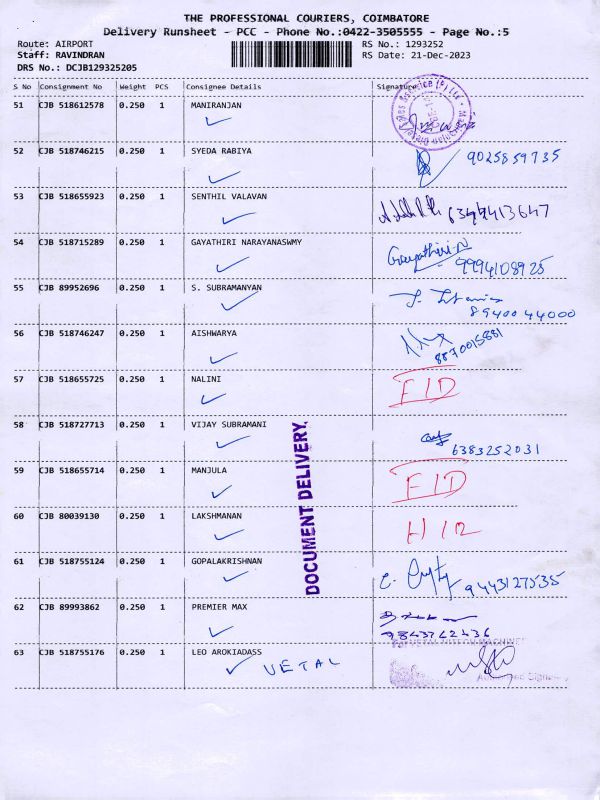 THE PROFESSIONAL COURIERS, COIMBATORE
Delivery Runsheet - PCC - Phone No.:0422-3505555 - Page No.:5
Route: AIRPORT RS No.: 1293252
Staff: RAVINDRAN RS Date: 21-Dec-2023
DRS No.: DCJB129325205
S No Consignment No Weight PCS Consignee Details Signature
51 CJB 518612578 0.250 1 MANIRANJAN
52 CJB 518746215 0.250 1 SYEDA RABIYA
9025859735
53 CJB 518655923 0.250 1 SENTHIL VALAVAN
6379413647
54 CJB 518715289 0.250 1 GAYATHIRI NARAYANASWMY
Gayathiri.N
9994108925
55 CJB 89952696 0.250 1 S. SUBRAMANYAN
8940044000
56 CJB 518746247 0.250 1 AISHWARYA
8870015881
57 CJB 518655725 0.250 1 NALINI
FID
58 CJB 518727713 0.250 1 VIJAY SUBRAMANI
6383252031
59 CJB 518655714 0.250 1 MANJULA
FID
60 CJB 80039130 0.250 1 LAKSHMANAN
DOCUMENT DELIVERY.
61 CJB 518755124 0.250 1 GOPALAKRISHNAN
9443127535
62 CJB 89993862 0.250 1 PREMIER MAX
9843762436
63 CJB 518755176 0.250 1 LEO AROKIADASS
VETAL